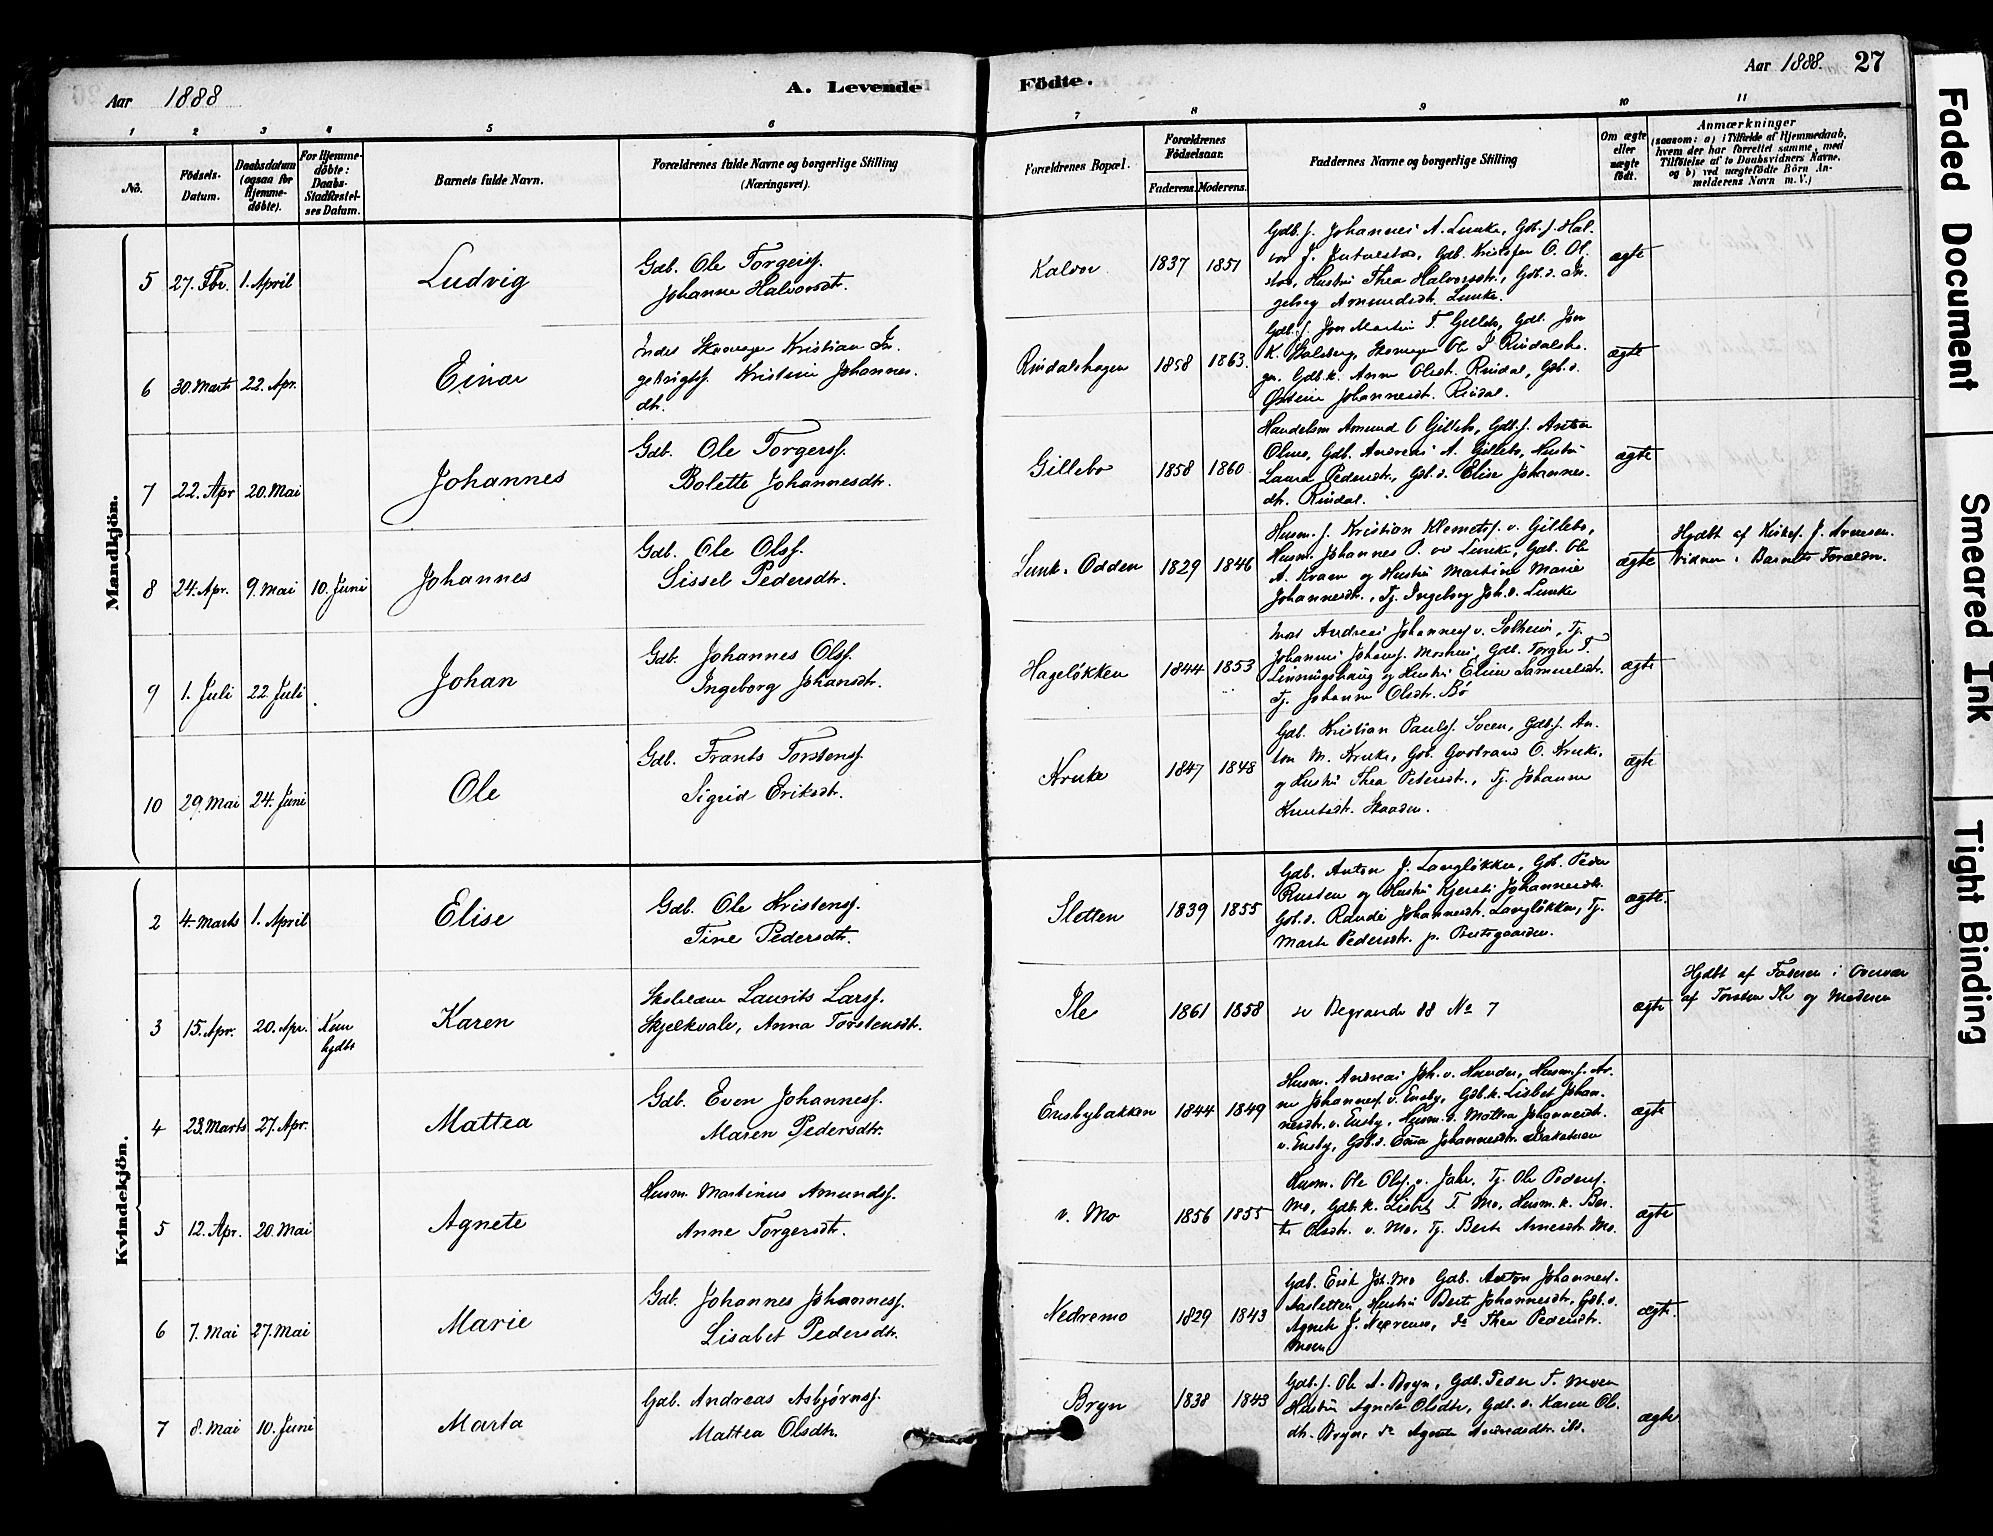 Aar 1888
A. Levende Födte.
Aar 1888. 27
1 2 3 4 5 6 7 8 9 10 11
No.
Födsels-Datum.
Daabsdatum (ogsaa for Hjemme-döbte).
For Hjemme-döbte: Daabs-Stadfæstel-ses Datum.
Barnets fulde Navn.
Forældrenes fulde Navne og borgerlige Stilling (Næringsvei).
Forældrenes Bopæl.
Forældrenes Födselsaar.
Faderens. Moderens.
Faddernes Navne og borgerlige Stilling
Om ægte eller uægte födt.
Anmærkninger
(saasom: a) i Tilfælde af Hjemmedaab,
hvem der har forrettet samme, med
Tilföielse af to Daabsvidners Navne,
og b) ved uægtefödte Börn An-
melderens Navn m. V.)
Mandkjön.
5 27. Fbr. 1. April Ludvig
Gdb. Ole Torgeirs.
Johanne Halvorsdt.
Kalvor 1837 1851
Gdb.s. Johannes A. Lunke, Gdb.s. Hal-
vor J. Gdb. Kristofer O. Ol-
stad, Hustru Thea Halvorsdt., Gdb.d. In-
geborg Amundsdt. Lunke.
ægte
6 30. Marts 22. Apr. Einar
Inderst Skomager Kristian In-
gebrigts. Kristine Johannes-
dt.
Rindalshagen 1858 1863.
Gdb.s. Jon Martin T. Gillebo, Gdb. Jon
K. Skomager Ole J. Rindalsha-
gen. Gdb.k. Anne Olsdt. Rindal, Gdb.d.
Johannesdt. Rindal.
ægte
7 22. Apr 20. Mai Johannes
Gdb. Ole Torgerss.
Bolette Johannesdtr.
Gillebo 1858 1860.
Handelsm Amund O Gillebo, Gdb.s. Anton
Gdb. Andreas A. Gillebo, Hustru
Laura Pedersdt., Gdb.d. Elise Johannes-
dt. Rindal.
ægte
8 24. Apr. 9. Mai 10. Juni Johannes
Gdb. Ole Olss.
Sissel Pedersdtr.
Lunk. Odden 1829 1846
Husm.s. Kristian Klemets. v. Gillebo,
Husm. Johannes P. Lunke, Gdb. Ole
A. Kraen og Hustru Martine Marie
Johannesdt., Tj. Ingeborg Joh.d. Lunke
ægte
Hjdbt af Kirkes. J. Arnesen.
Vidner: Barnets Forældre.
9 1. Juli 22. Juli. Johan
Gdb. Johannes Olss.
Ingeborg Johansdt.
Hageløkken 1844 1853
Andreas Johanness v. Solheim, Tj.
Johannes Gdb. Torger T.
Linningshaug og Hustru Eline Samuelsdt.
Tj. Johanne Olsdtr. Bø
ægte
10 29. Mai 24. Juni Ole
Gdb. Frants Torstens.
Sigrid Eriksdtr.
Kruke 1847 1848
Gdb. Kristian Pauls. Sveen, Gdb.s. An-
ton M. Kruke, Gdb. O. Kruke,
og Hustru Thea Pedersdt., Tj. Johanne
Knutsdt. Skaaden.
ægte
Kvindekjön.
2 4. Marts 1. April Elise
Gdb. Ole Kristens.
Tine Pedersdtr.
Sletten 1839 1855
Gdb. Anton J. Langløkken, Gdb. Peder
Rusten og Hustru Kjersti Johannesdt.
Gdb.d. Randi Johannesdt. Langløkken, Tj.
Marte Pedersdtr. p.
ægte.
3 15. Apr. 20. Apr. Kun hjdbt Karen
Skolelærer Laurits Larss.
Skjelkvale, Anna Torstensdt.
Ile 1861 1858
se Begravde 88 No 7
ægte
Hjdbt af Faderen i Overvær
af Torsten Ile og Moderen
4 23. Marts 27. Apr. Mattea
Gdb. Even Johanness.
Maren Pedersdtr.
Ensbybakken 1844 1849
Husm. Andreas Joh. v. Husm.s. Ar-
ne Johanness v. Ensby, Gdb.k. Lisbet Johan-
nesdt. v. Ensby, Husm.d. Mathea Johannesdt.
v. Ensby, Gdb.d. Johannesdt.
ægte
5 12. Apr. 20. Mai Agnete
Husm. Martinus Amundss.
Anne Torgersdtr.
v. Mo 1856 1855
Husm. Ole Ols. v. Jahr, Tj. Ole Peders.
Mo, Gdb.k. Lisbet T. Mo, Husm.k. Ber-
te Olsdtr. v. Mo, Tj. Berte Arnesdt. Mo.
ægte
6 7. Mai 27. Mai Marie
Gdb. Johannes Johanness.
Lisabet Pedersdtr.
Nedremo 1829 1843
Gdb. Erik Joh. Mo Gdb. Anton Johanness.
Aasletten, Hustru Berte Johannesdt., Gdb.d.
Agnete J. Nedremo, do Thea Pedersdtr.
Moen
ægte.
7 8. Mai 10. Juni Marta
Gdb. Andreas Asbjørnss.
Mattea Olsdtr.
Bryn 1838 1843
Gdb.s. Ole A. Bryn, Gdb. Peder T. Moen
Hustru Agnete Olsdtr, Gdb.d. Karen Ol-
dt. Bryn, do Agnete ibd.
ægte
Faded Document
Smeared Ink
Tight Binding